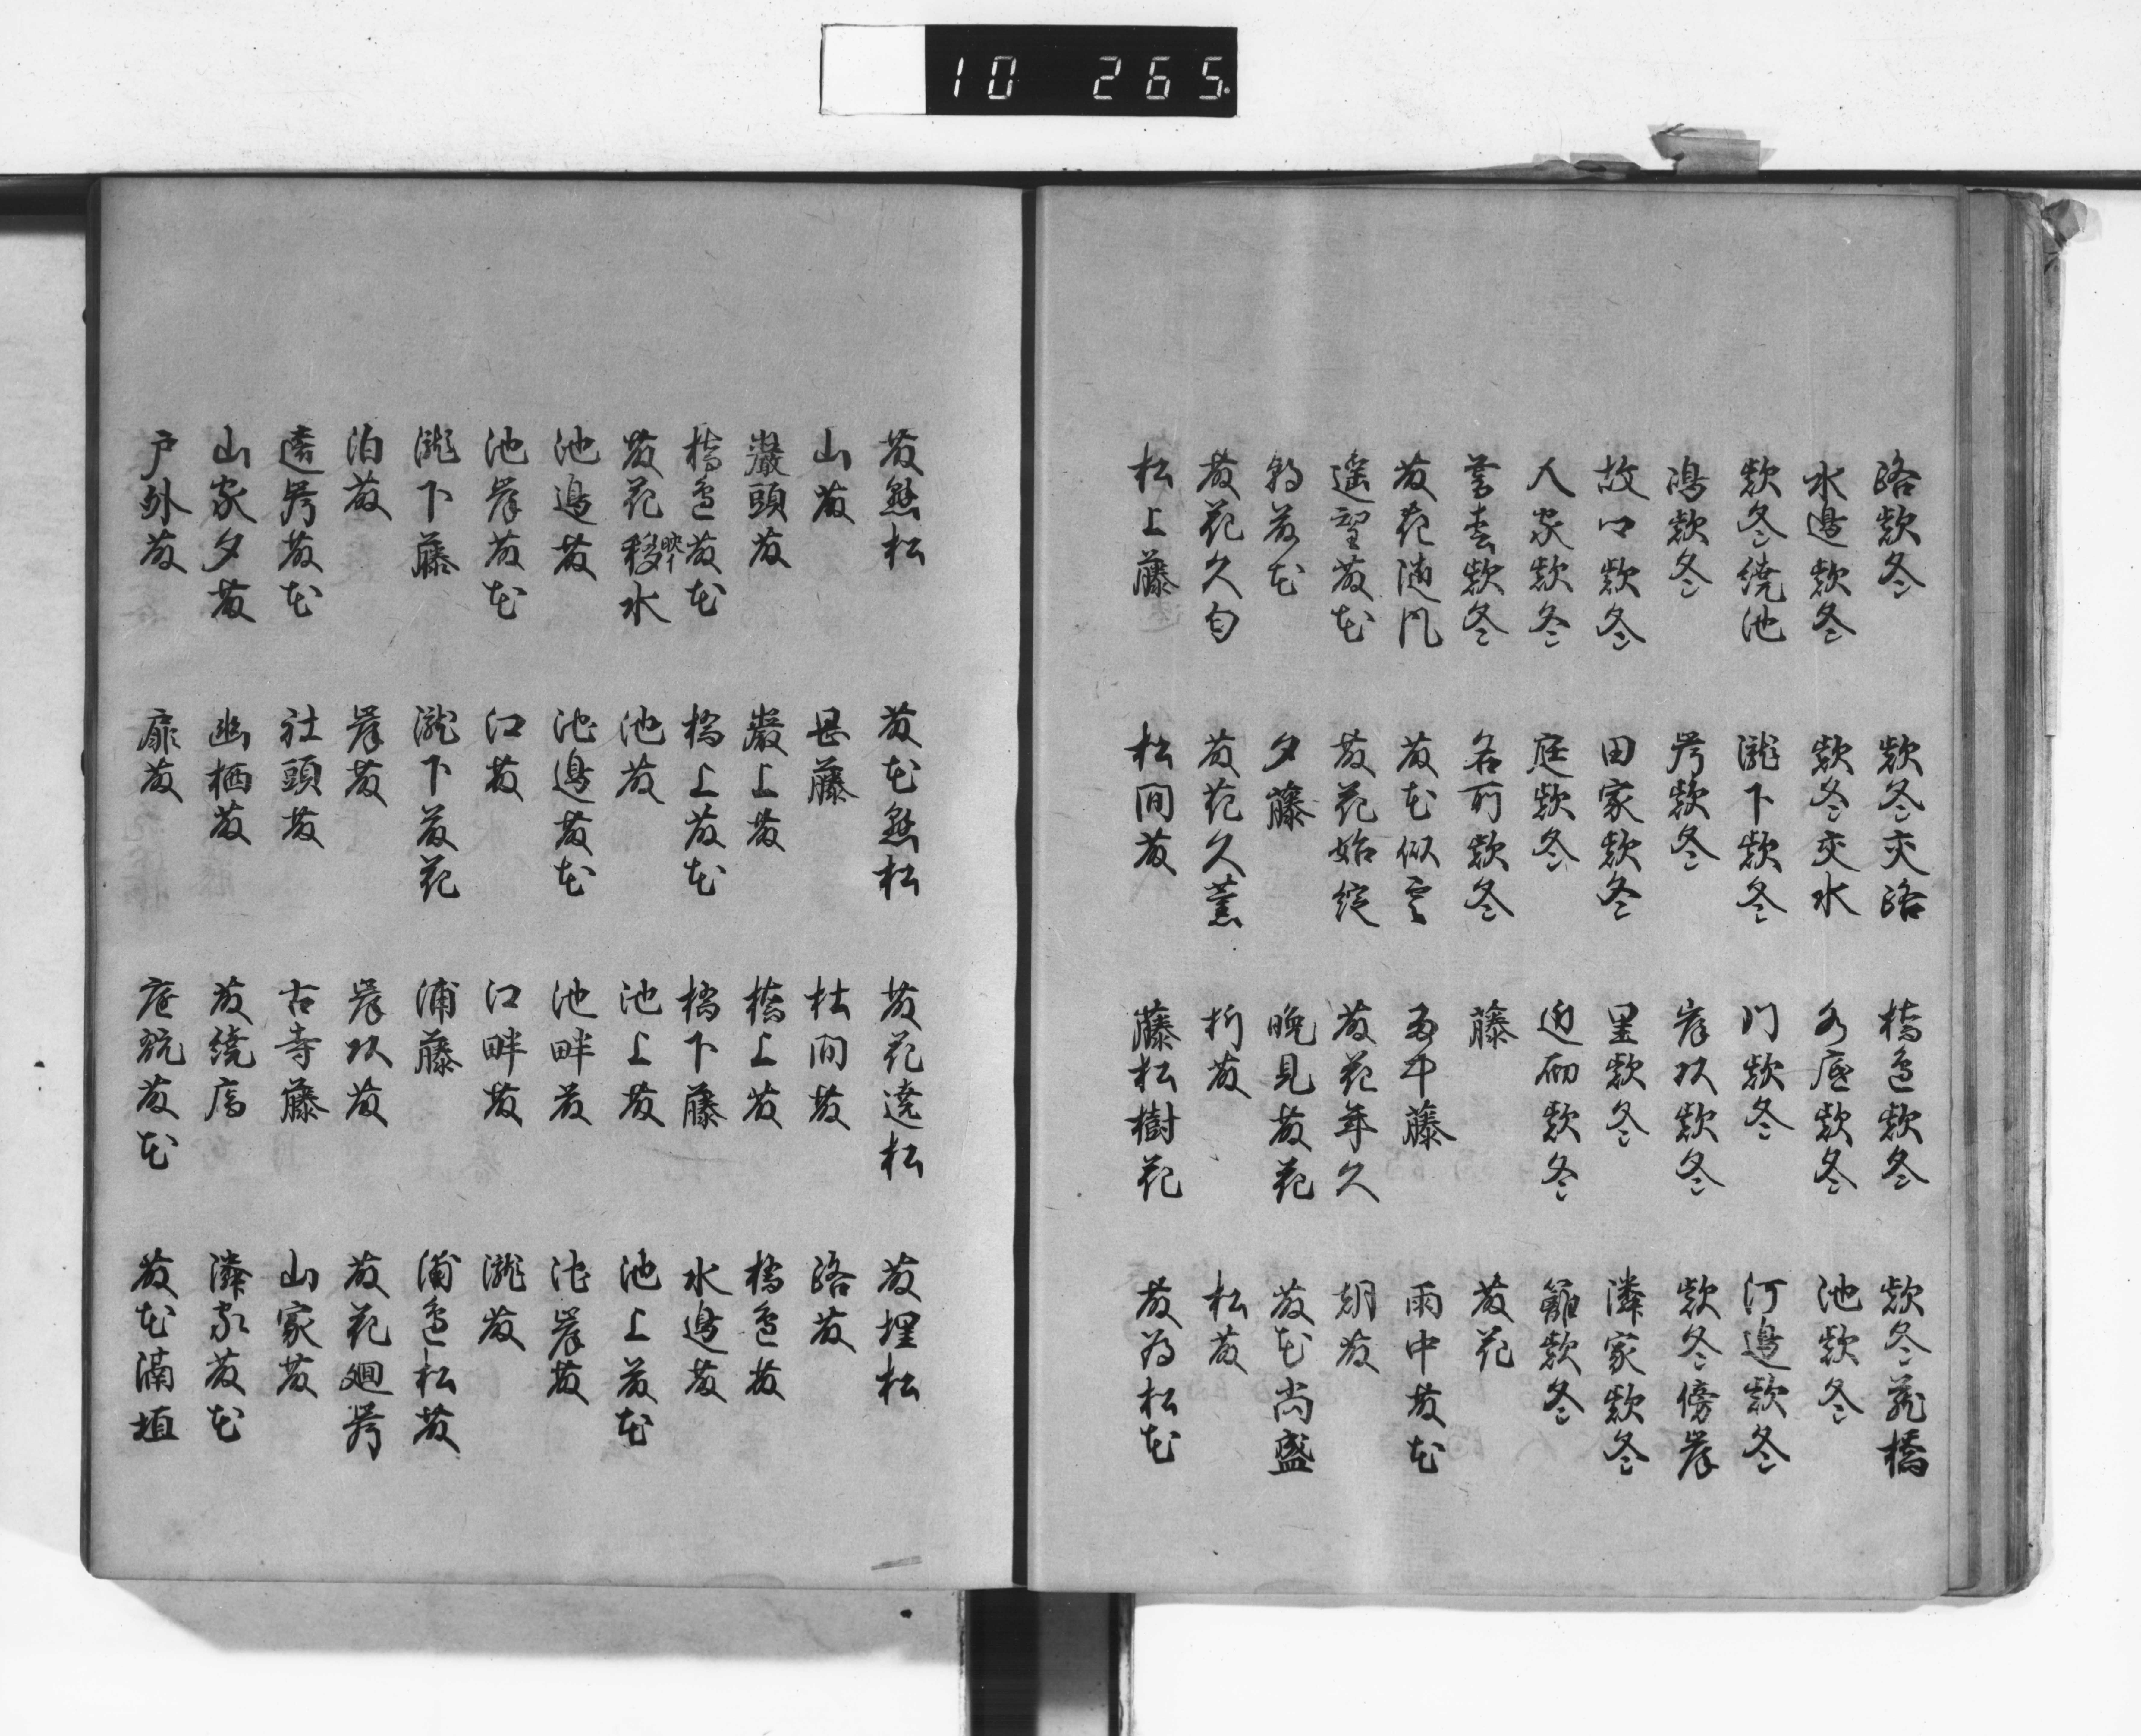 10 265
路款冬 款冬夾路 橋邊款冬 款冬 橋
水邊款冬 款冬夾水 水底款冬 池款冬
款冬繞池 瀧下款冬 款冬 河邊款冬
款冬 岸款冬 岸頭款冬 款冬傍岸
故郷款冬 田家款冬 里款冬 隣家款冬
人家款冬 庭款冬 近砌款冬 籬款冬
暮春款冬 名所款冬 藤 藤花
藤花随風 藤花似雲 雨中藤 雨中藤花
遥望藤花 藤花始綻 藤花年久 朝藤
朝藤花 夕藤 晩見藤花 藤花尚盛
藤花久匂 藤花久薫 折藤 松藤
松上藤 松間藤 藤松樹花 藤為松花
藤懸松 藤花懸松 藤花遶松 藤埋松
山藤 藤 杜間藤 路藤
巌頭藤 巌上藤 橋上藤 橋邊藤
橋邊藤花 橋上藤花 橋下藤 水邊藤
藤花移映イ水 池藤 池上藤 池上藤花
池邊藤 池邊藤花 池畔藤 池岸藤
池岸藤花 江藤 江畔藤 瀧藤
瀧下藤 瀧下藤花 浦藤 浦邊松藤
泊藤 岸藤 岸頭藤 藤花廻岸
遠岸藤花 社頭藤 古寺藤 山家藤
山家夕藤 幽栖藤 藤繞 隣家藤花
戸外藤 扉藤 庭翫藤花 藤花満垣